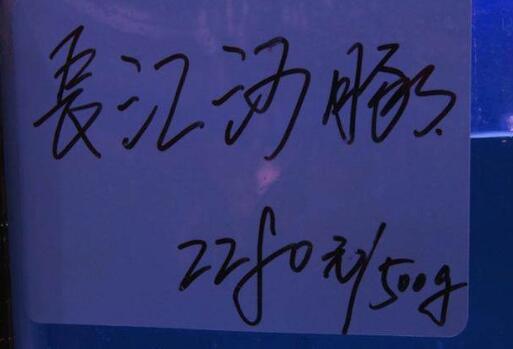 長江河豚
2280元/500g